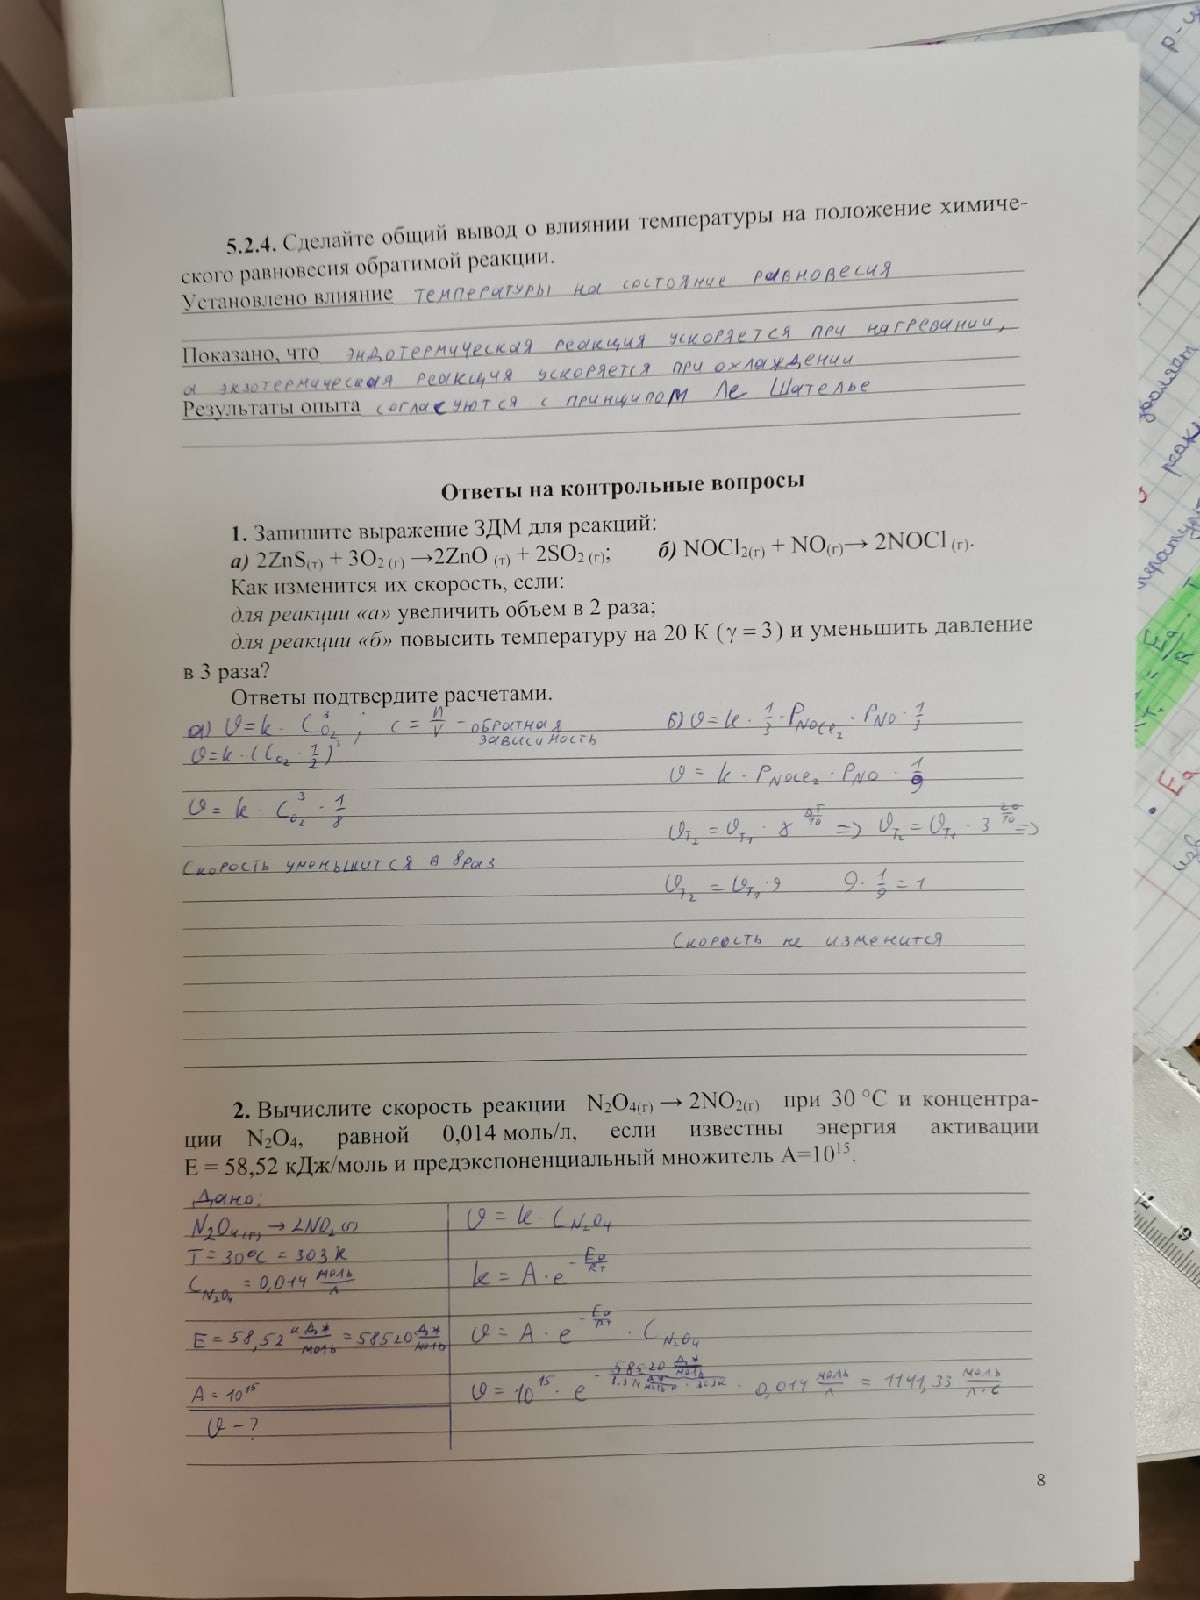 5.2.4. Сделайте общий вывод о влиянии температуры на положение химиче-
ского равновесия обратимой реакции.
Установлено влияние температуры на состояние равновесия
Показано, что эндотермическая реакция ускоряется при нагревании,
а экзотермическая реакция ускоряется при охлаждении
Результаты опыта согласуются с принципом Ле Шателье
Ответы на контрольные вопросы
1. Запишите выражение ЗДМ для реакций:
а) 2ZnS(т) + 3O2 (г) →2ZnO (т) + 2SO2 (г); б) NOCl2(г) + NO(г)→ 2NOCl (г).
Как изменится их скорость, если:
для реакции «а» увеличить объем в 2 раза;
для реакции «б» повысить температуру на 20 К (γ = 3) и уменьшить давление
в 3 раза?
Ответы подтвердите расчетами.
а) υ = k · C³O2 ; c = n/V - обратная зависимость
υ = k · (CO2 · 1/2)³
υ = k · C³O2 · 1/8
Скорость уменьшится в 8 раз
б) υ = k · 1/3 · PNOCl2 · PNO · 1/3
υ = k · PNOCl2 · PNO · 1/9
υT2 = υT1 · γ^ΔT/10 => υT2 = υT1 · 3^20/10 =>
υT2 = υT1 · 9 9 · 1/9 = 1
Скорость не изменится
2. Вычислите скорость реакции N2O4(г) → 2NO2(г) при 30 °С и концентра-
ции N2O4, равной 0,014 моль/л, если известны энергия активации
E = 58,52 кДж/моль и предэкспоненциальный множитель A=10¹⁵.
Дано:
N2O4(г) → 2NO2(г)
T = 30°C = 303 K
CN2O4 = 0,014 моль/л
E = 58,52 кДж/моль = 58520 Дж/моль
A = 10¹⁵
υ - ?
υ = k · CN2O4
k = A · e^-Ea/RT
υ = A · e^-Ea/RT · CN2O4
υ = 10¹⁵ · e · 0,014 моль/л = 1141,33 моль/л·с
8